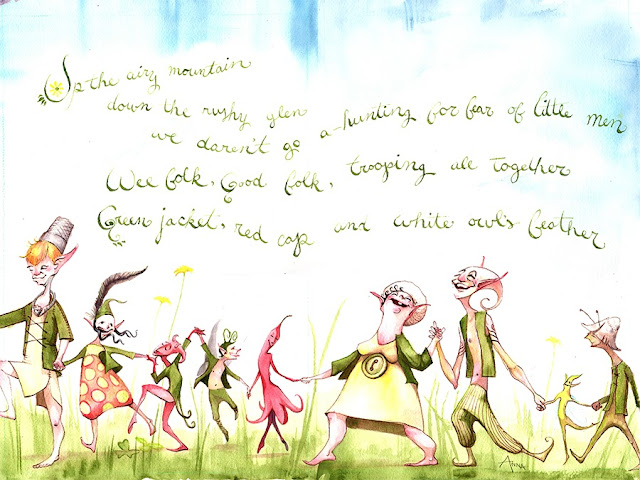 Up the airy mountain
down the rushy glen
we daren't go a-hunting for fear of little men
Wee folk, Good folk, trooping all together
Green jacket, red cap and white owl's feather
ANNA